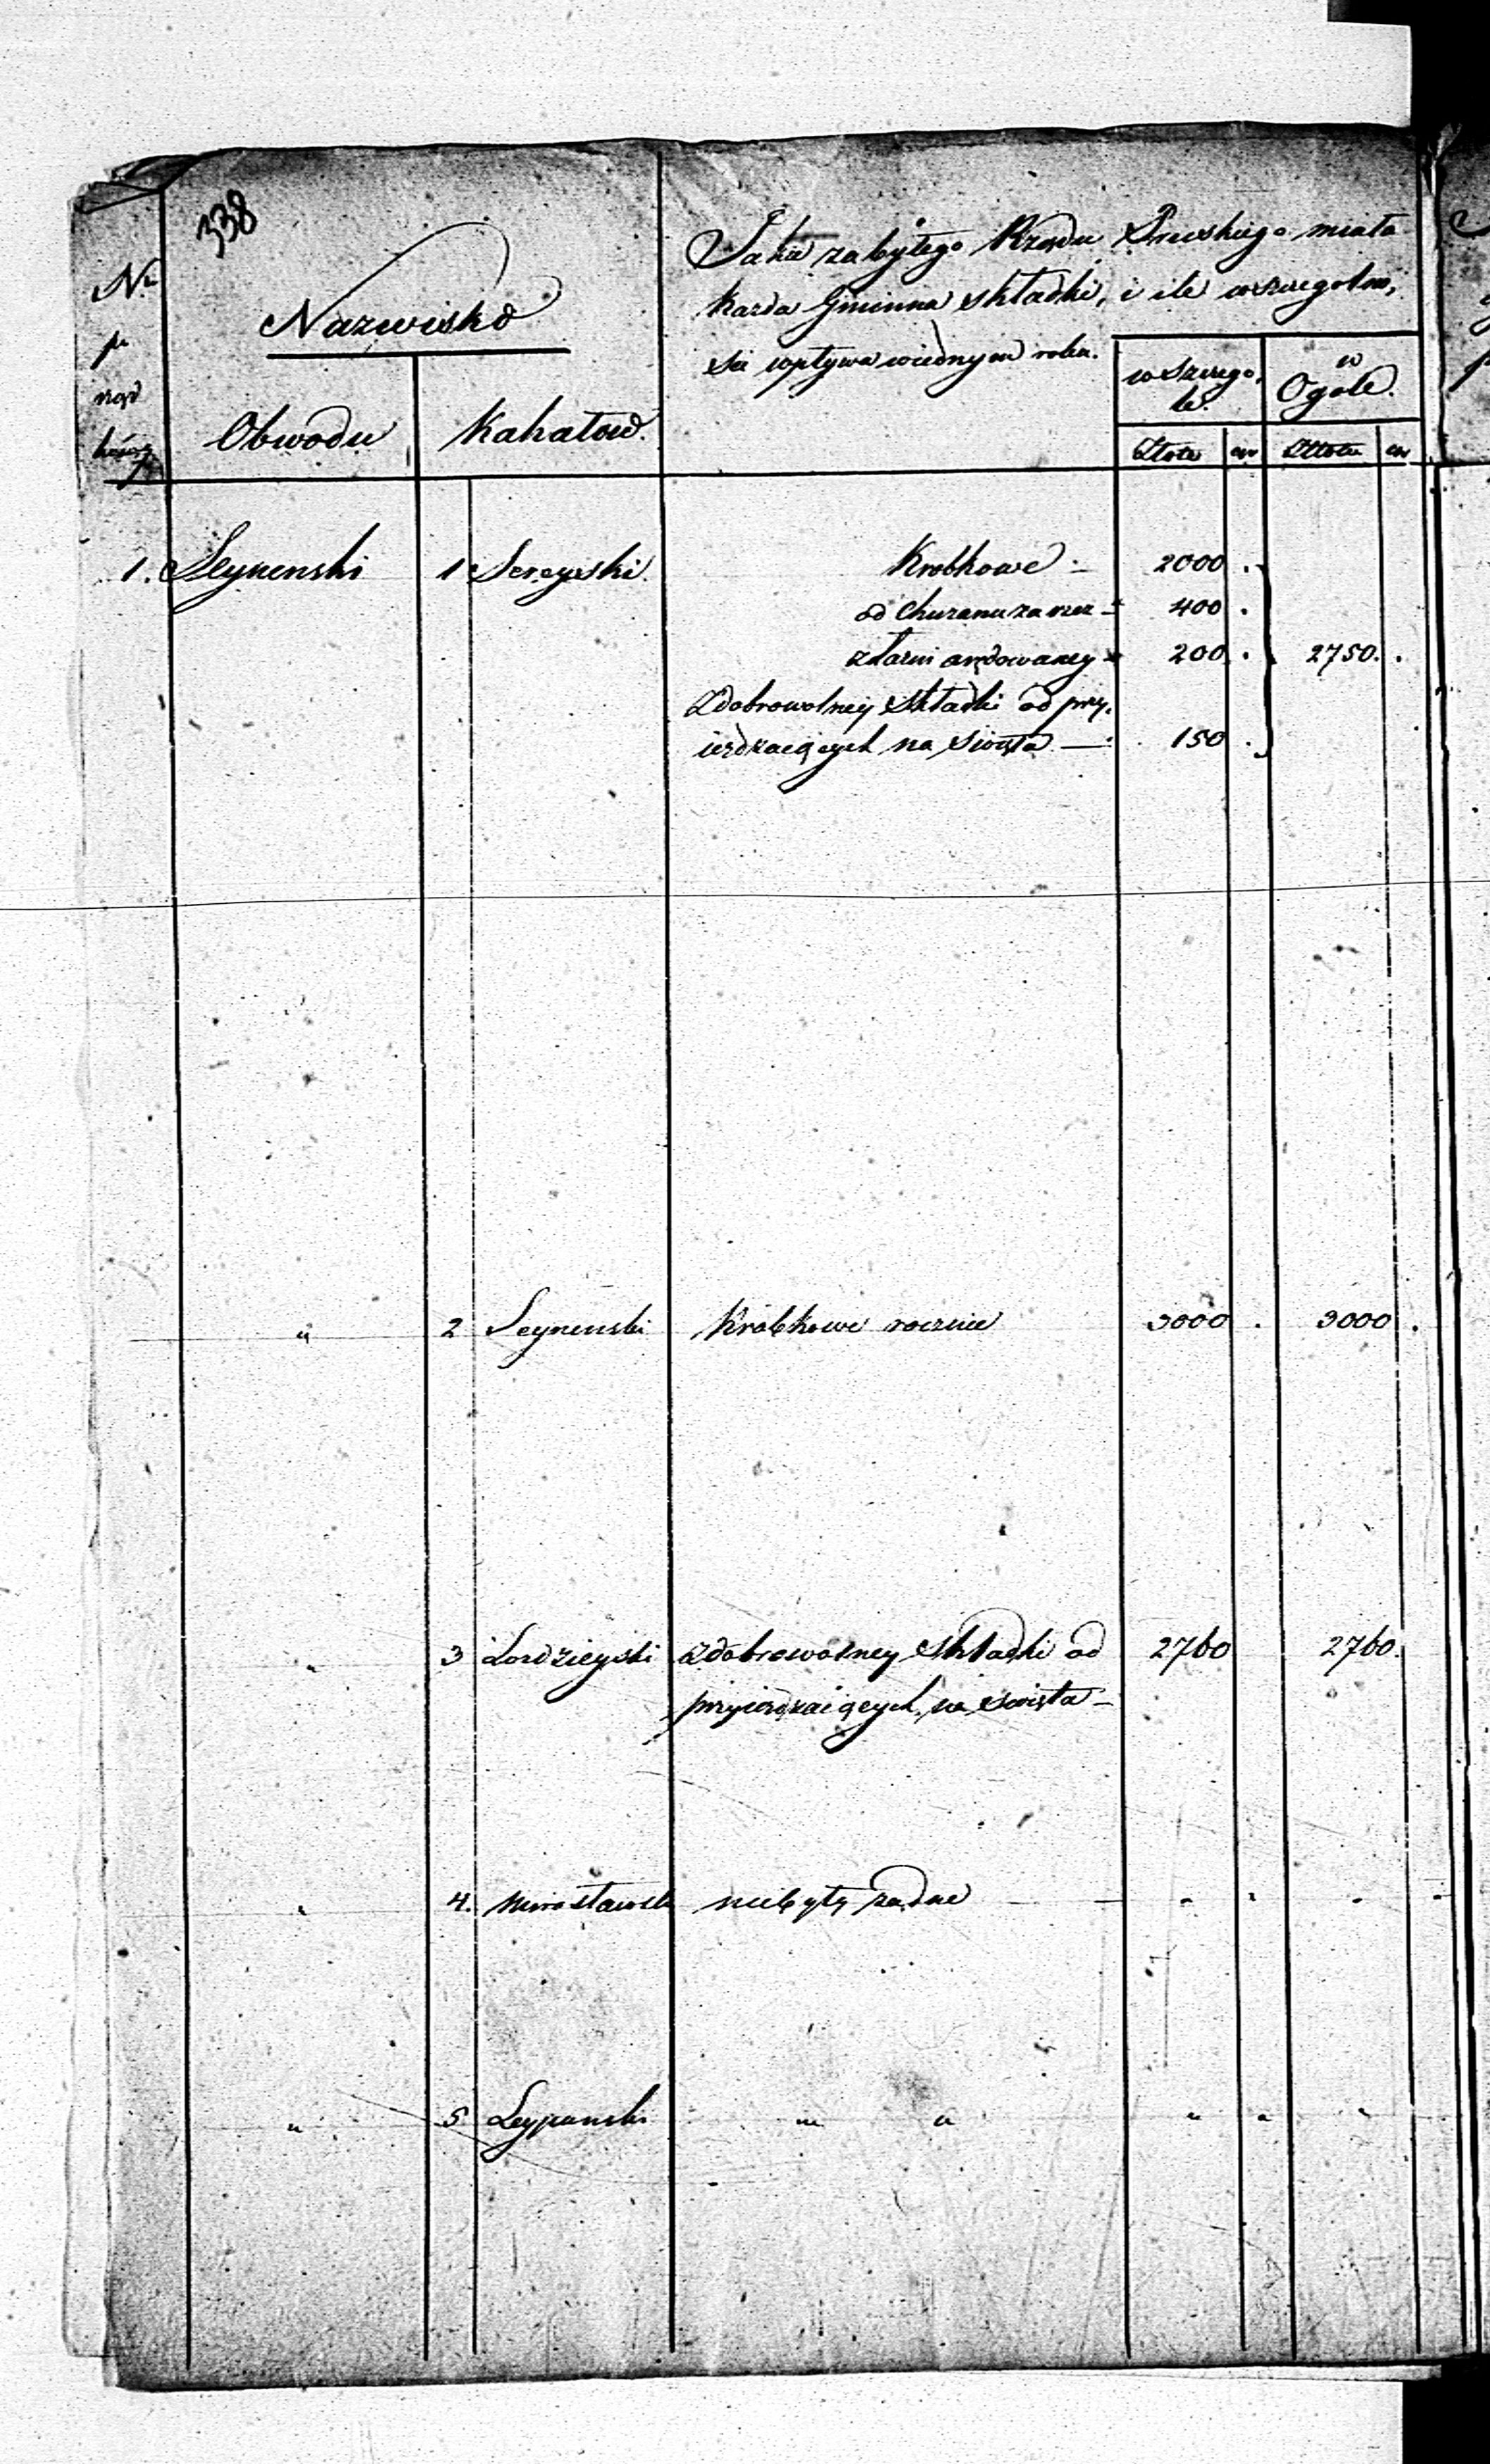 338
Nr
po
rząd
Nazwisko
Obwodu
Kahałow.
Jakie za byłego Rządu Pruskiego miała
każda Gminna składki, i ile wszczegolno,
sci wpływa wiednym roku.
wszczego,
le.
w
Ogole.
Złote
gr
Złote
gr
1. Seynenski 1 Sereyski. Krobkowe 2000 .
od Churamu za rzez 400 .
z łazni arędowaney 200 . 2750. .
Zdobrowolney składki od przy,
iezdzaiących na swięta 150 .
" 2 Seynenski Krobkowe rocznie 3000 . 3000 .
" 3 Lozdzieyski zdobrowolney składki od 2760 2760.
przyiezdzaiących na swięta
" 4. Mirosławsk niebyły żadne
" 5 Leypunski " " " " "